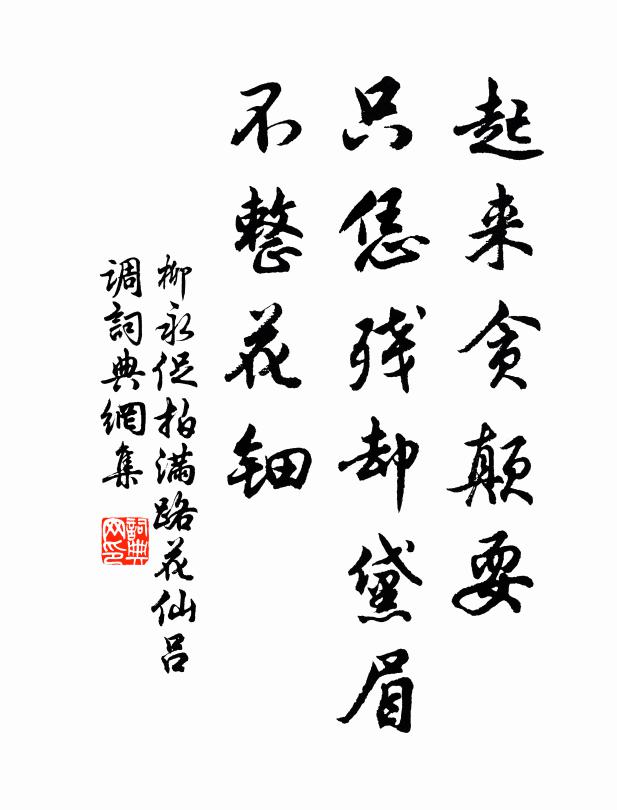 起来贪颠耍
只恁残却黛眉
不整花钿
柳永促拍满路花仙吕
调詞典網集
詞典网印